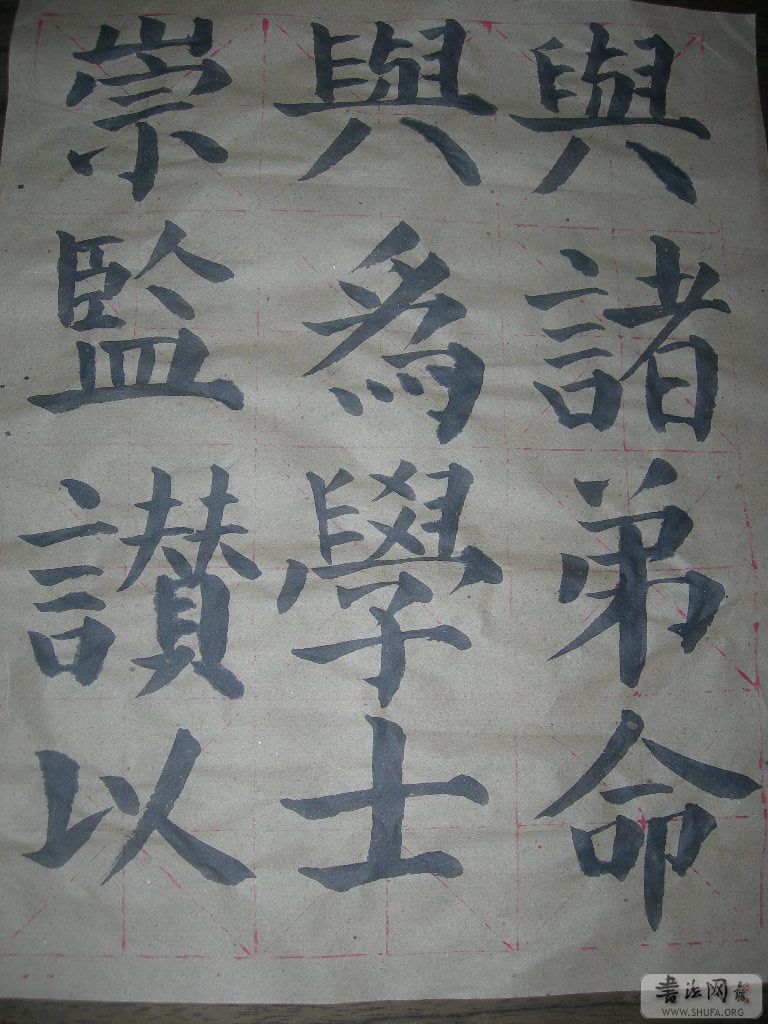 與諸弟命
與爲學士
崇監讃以
书法网
WWW.SHUFA.ORG